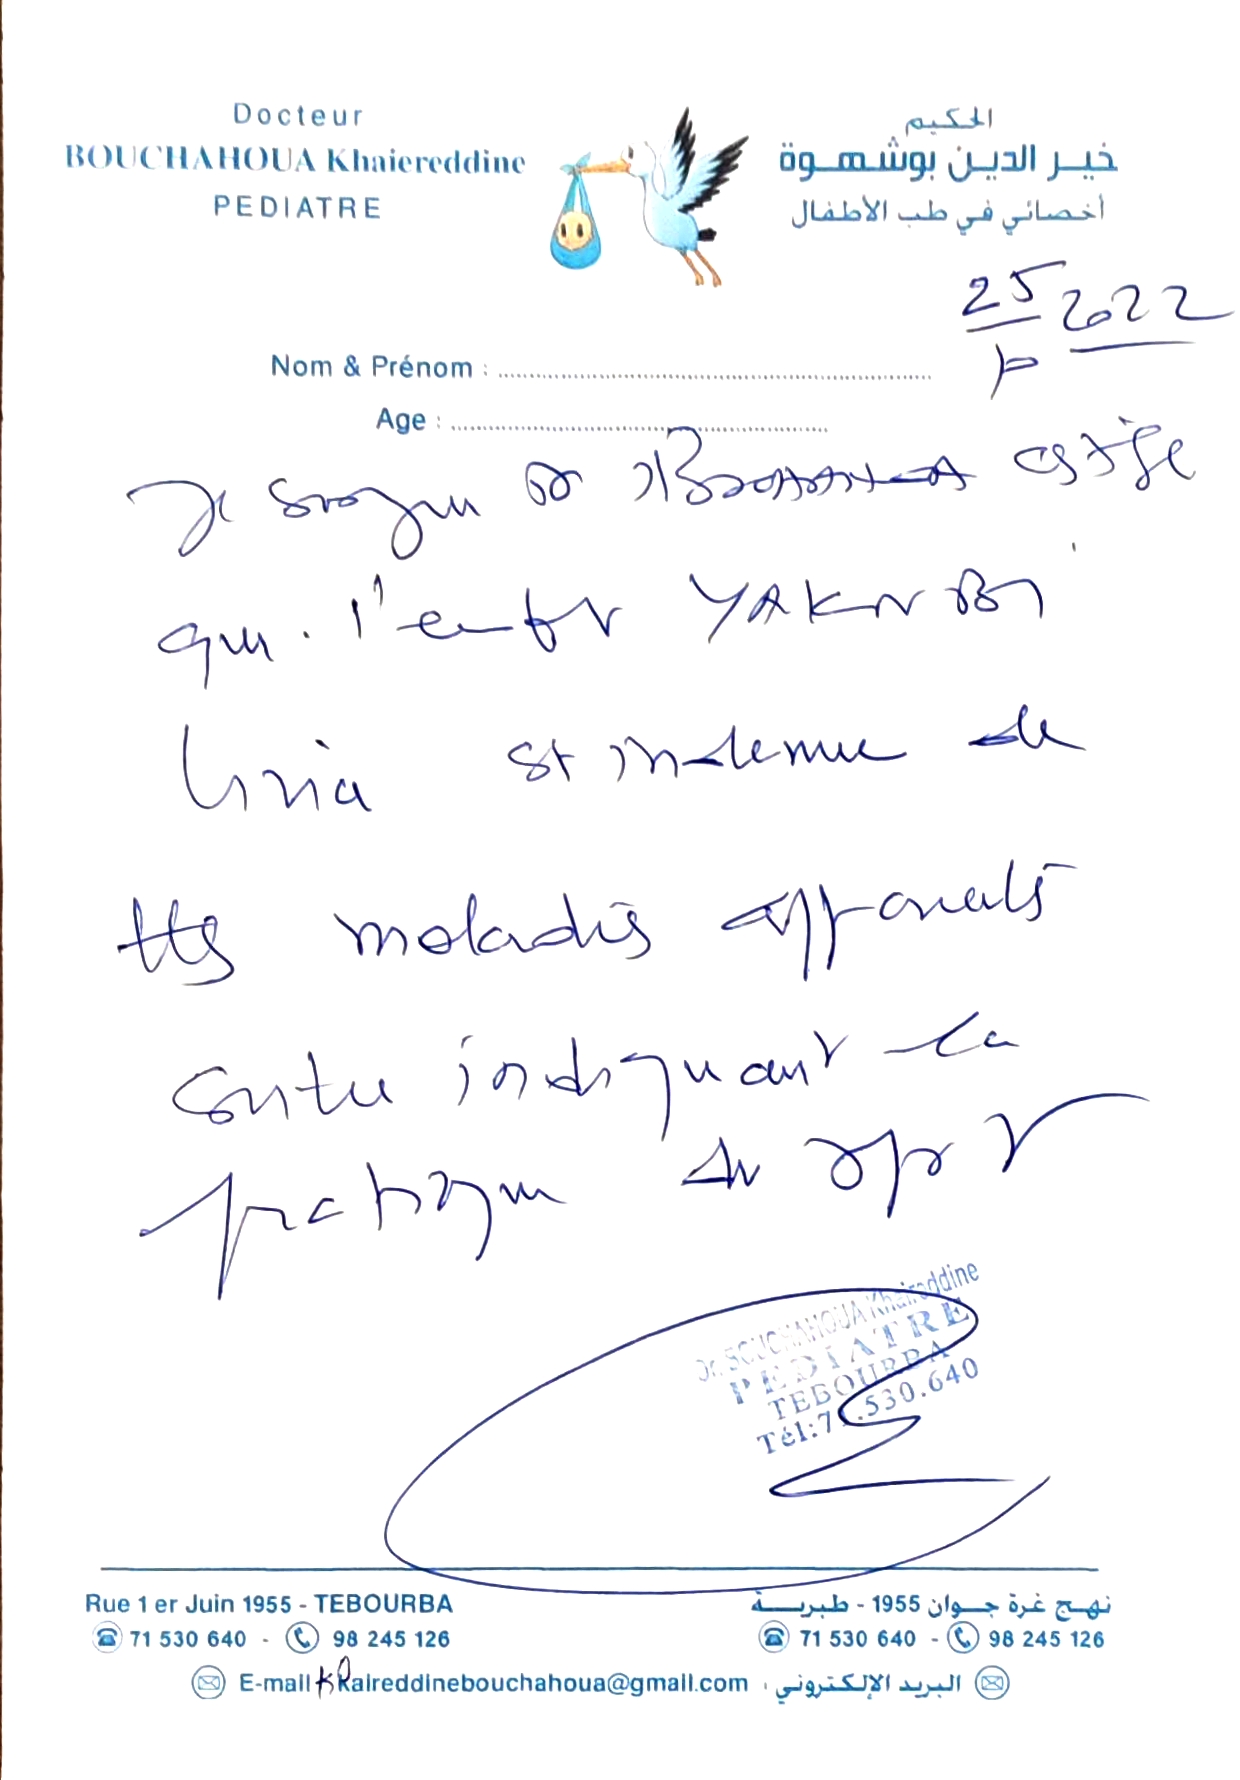 Docteur
BOUCHAHOUA Khaiereddine
PEDIATRE
الحكيم
خير الدين بوشهوة
أخصائي في طب الأطفال
25 2022
Nom & Prénom :
Age :
Je
que l'enft YAKNBI
st indemne de
ttes maladies apparentes
contre indiquant la
pratique du sport
Dr. BOUCHAHOUA Khaireddine
PEDIATRE
TEBOURBA
Tél:71.530.640
Rue 1 er Juin 1955 - TEBOURBA
71 530 640 - 98 245 126
نهج غرة جوان 1955 - طبربة
71 530 640 - 98 245 126
E-mail khaireddinebouchahoua@gmail.com : البريد الإلكتروني